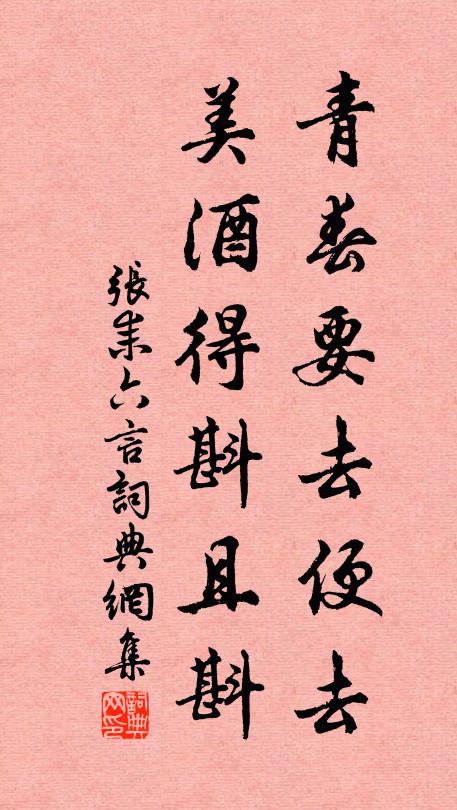 青春要去便去
美酒得斟且斟
張耒六言詞典網集
詞典网印